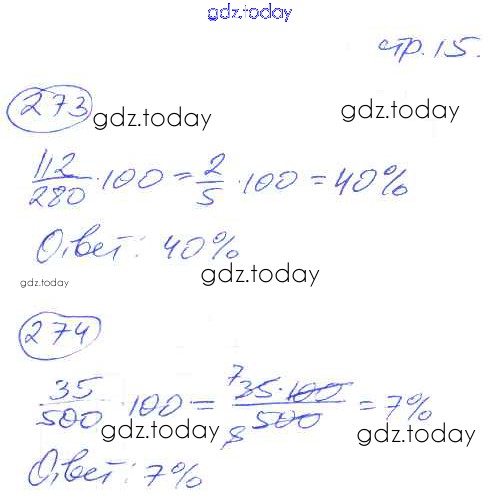 gdz.today
стр. 15.
273
gdz.today
gdz.today
112/280 · 100 = 2/5 · 100 = 40%
Ответ: 40%
gdz.today
gdz.today
274
35/500 · 100 = 7 35·100/500 = 7%
gdz.today
gdz.today
Ответ: 7%